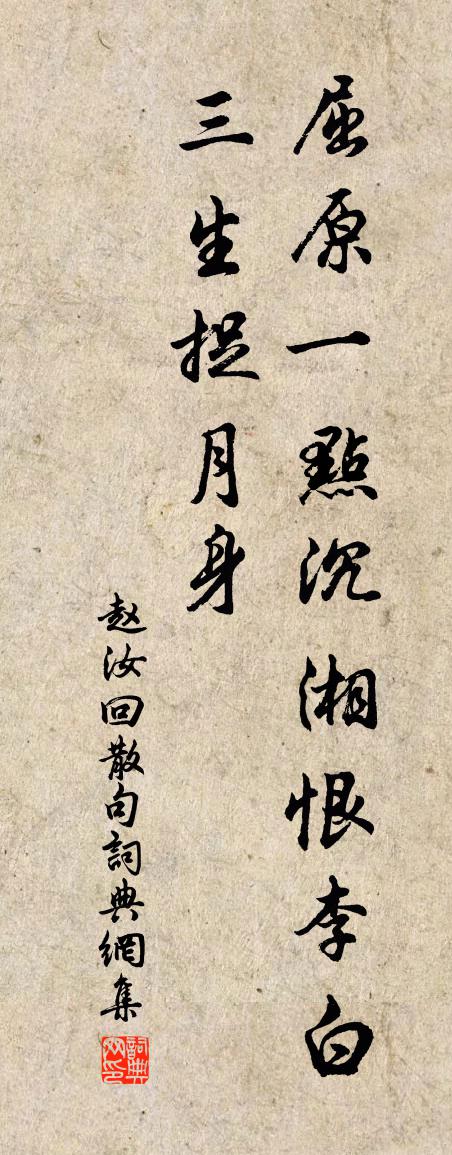 屈原一點沉湘恨李白
三生捉月身
赵汝回散句詞典網集
詞典網印